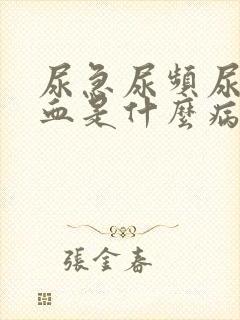 尿急尿頻尿
血是什麼病
張金春